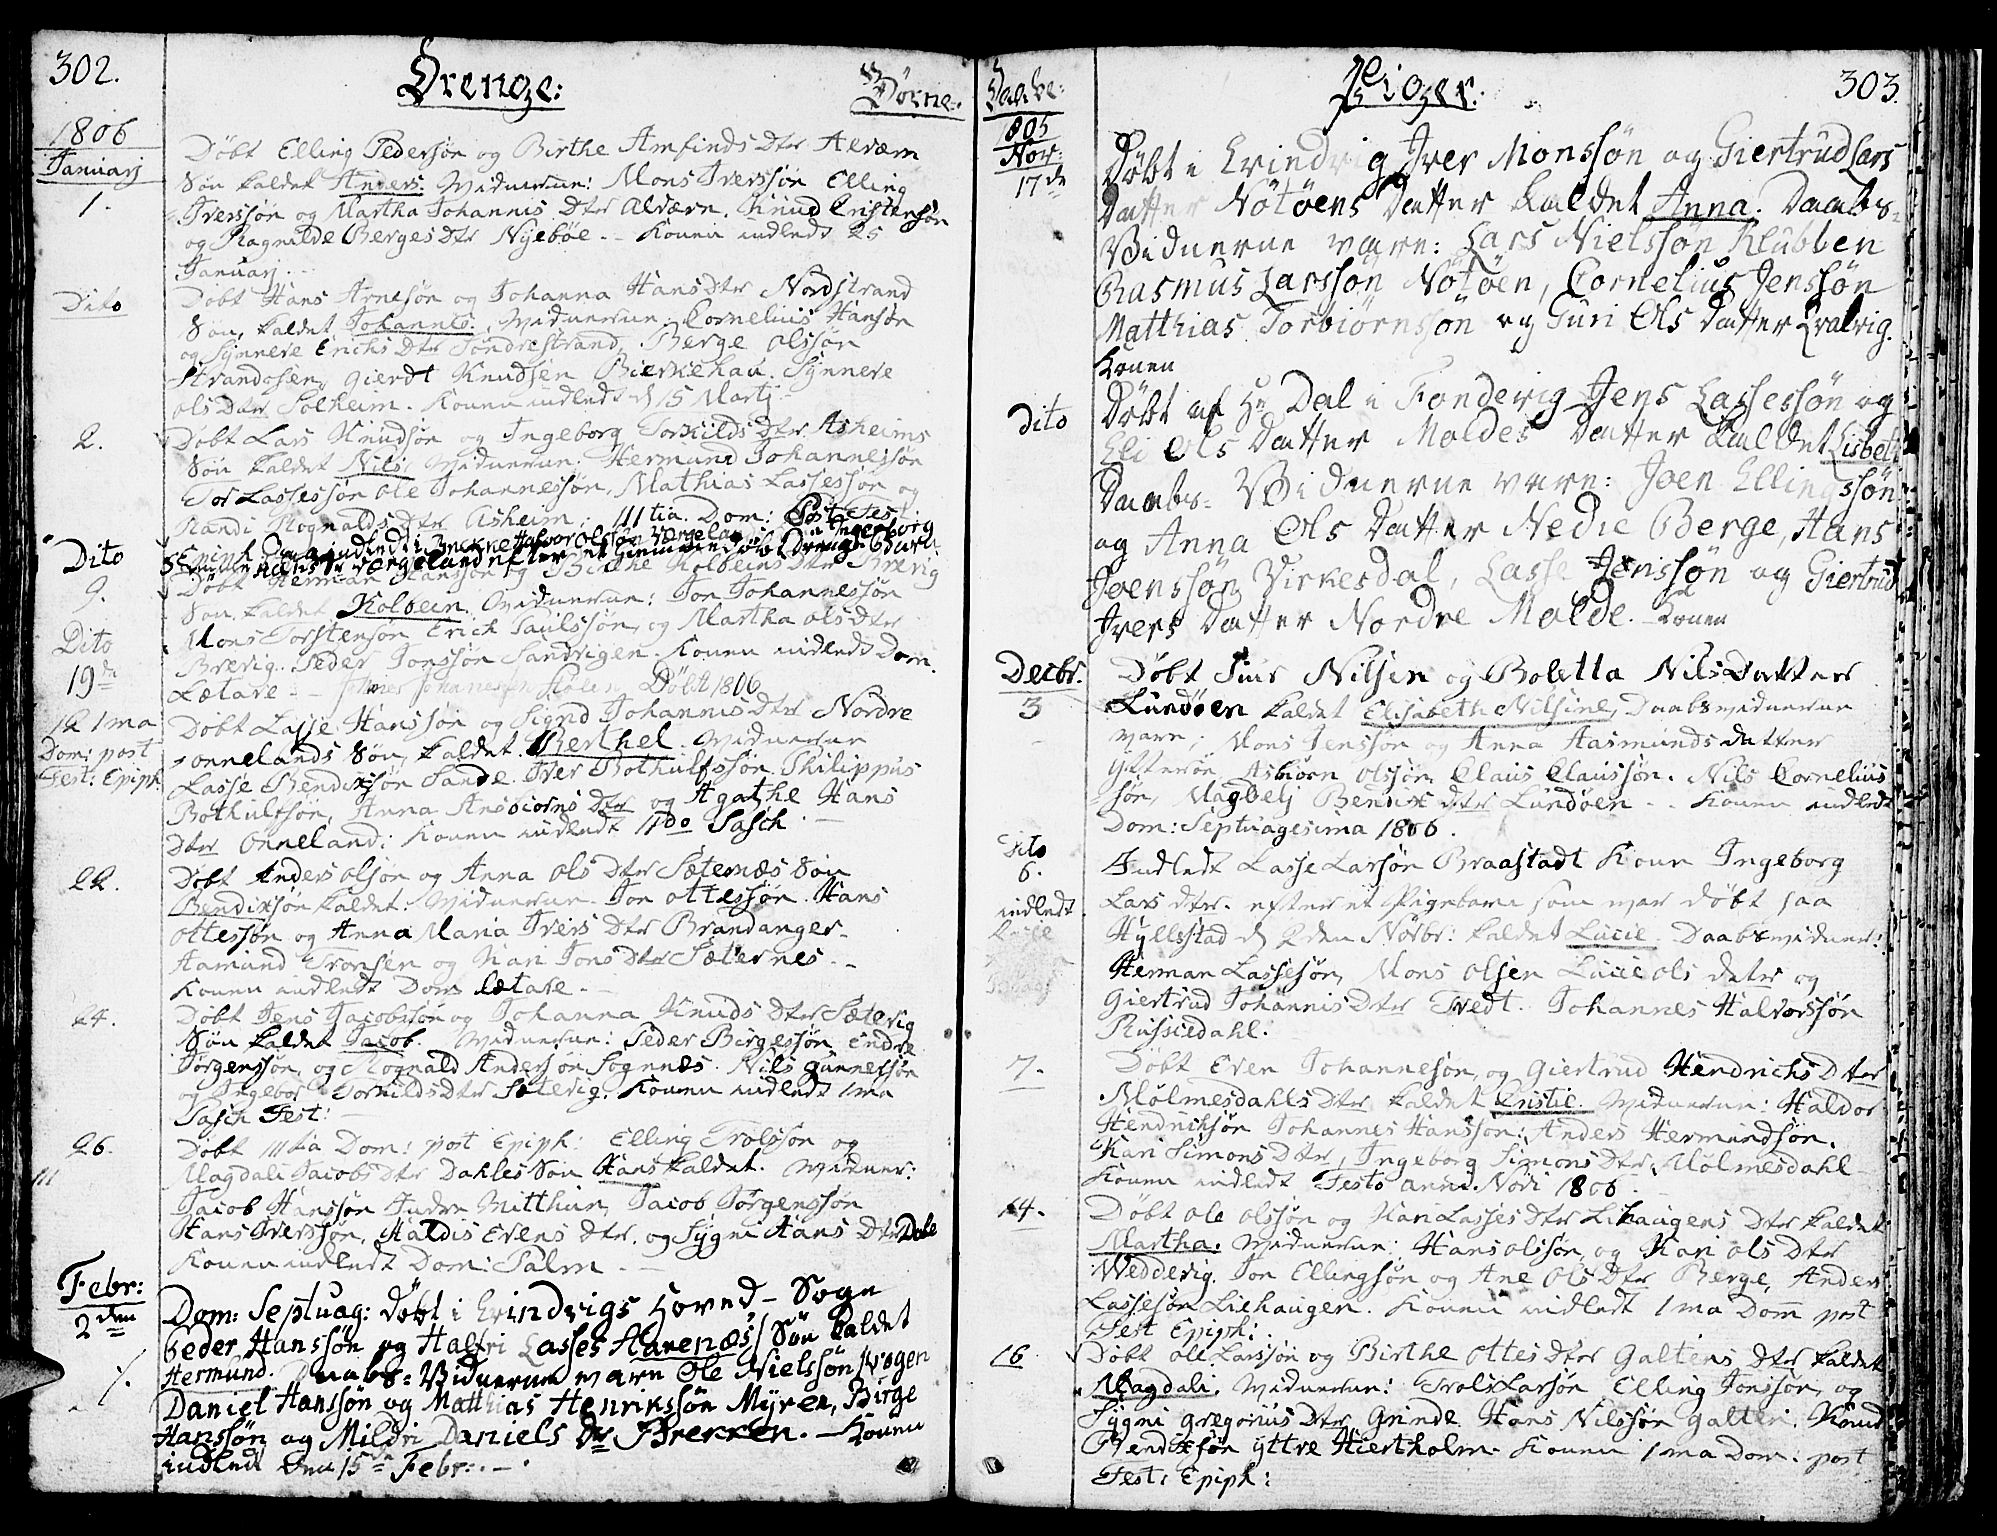 302.
Drenge:
Børne-
1806
Januarj
1.
Døbt Elling Pedersøn og Birthe Amfinds Dtr Alværn
Søn kaldet Anders. Vidnerne: Mons Iverssøn Elling
Iverssøn og Martha Johannis Dtr Alværn. Knud Cristensøn
og Ragnilde Berges Dtr Nyebøe. - Konen indledt 25
Januarj.
Dito
Døbt Hans Arnesøn og Johanna Hans Dtr Nordstrand
Søn, kaldet Johannes. Vidnerne: Cornelius Hansøn
og Synneve Erichs Dtr Søndrestrand, Berge Olssøn
Strandosen, Gierdt Knudsen Bierkehau. Synneve
Ols Dtr Solheim. Konen indledt d 15 Martj -
2.
Døbt Lars Knudsøn og Ingeborg Torkilds Dtr Asheims
Søn kaldet Nils. Vidnerne: Hermund Johannessøn
Tor Lassessøn Ole Johannessøn, Mathias Lassessøn og
Randi Rognalds Dtr Asheim. III tia. Dom: Post Fest
Epiph
Dito
9.
Døbt Herman Hanssøn og Birthe Kolbeins Dtr Brevig
Søn kaldet Kolbein. Vidnerne: Jon Johannessøn
Dito
19de
Mons Torstensøn Erich Paulssøn, og Martha Ols Dtr
Brevig. Peder Jonssøn Sandvigen. Konen indledt Dom.
Lætare. - Døbt 1806
12 1ma
Dom: post
Fest: Epiph.
Døbt Lasse Hanssøn og Signd Johannis Dtr Nordre
onnelands Søn, kaldet Berthel. Vidnerne
Lasse Bendixsøn Sande. Iver Bothulfssøn. Philippus
Bothulfsøn, Anna Ansbiørns Dtr og Agathe Hans
Dtr Onneland: Konen indledt IIdo Pasch. -
22.
Døbt Anders Olsøn og Anna Ols Dtr Sæternæs Søn
Bendixsøn kaldet: Vidnerne. Jon Ottessøn. Hans
Ottessøn og Anna Maria Ivers Dtr Brandanger-
Aamund Tronsen og Kari Jons Dtr Sæternes. -
Konen indledt Dom Lætare. -
24.
Døbt Jens Jacobsøn og Johanna Knuds Dtr Sætevig
Søn kaldet Jacob. Vidnerne: Peder Birgessøn Endre
Jørgenssøn, og Rognald Andersøn Sognnæs. Nils Gunnersøn
og Ingebor Torkilds Dtr Sætevig. Konen indledt 1ma
Pasch Fest: -
26.
III
Døbt III tia Dom: post Epiph: Elling Trolssøn og
Magdali Jacobs Dtr Dahles Søn Hans kaldet. Vidner:
Jacob Hanssøn Indre Mitthun, Jacob Jørgenssøn
Hans Iverssøn, Haldis Evens Dtr. og Sygni Hans Dtr Dale
Konen indledt Dom: Palm. -
Febr:
2den
Dom: Septuag: døbt i Evindvigs Hoved- Sogn
Peder Hanssøn og Halfri Lasses Aarenæs, Søn kaldet
Hermund. Daabs= Vidnerne vare Ole Nielssøn
Daniel Hanssøn og Matthias Henrikssøn Myren, Birge
Hanssøn og Mildri Daniels Dtr Brekken. - Konen
indledt den 15de Febr: -
Daabe:
Piger:
303.
1805
Nov:
17de
Døbt i Evindvig Iver Monssøn og Giertrud Lars
Datter Nötöens Datter kaldet Anna. Daabs=
Vidnerne vare: Lars Nielssøn Klubben
Rasmus Larssøn Nötöen, Cornelius Jenssøn
Matthias Torbiørnssøn og Guri Ols Datter Qvalvig.
Konen
Dito
Døbt af Hr Dal i Fondevig Jens Lassessøn og
Eli Ols Datter Moldes Datter kaldet Lisbeth
Daabs= Vidnerne vare: Joen Ellingssøn
og Anna Ols Datter Nedre Berge, Hans
Joenssøn Virkesdal, Lasse Jenssøn og Giertrud
Ivers Datter Nordre Molde. - Konen
Decbr.
3
Døbt Siur Nilsen og Boletta Nils Datter
Lundøen kaldet Elisabeth Nilsine, Daabsvidnerne
vare, Mons Jenssøn og Anna Aasmunds datter
Ytterøe, Asbiørn Olssøn. Claus Claussøn. Nils Cornelius
søn, Magbeli Bendix Dtr Lundøen - . Konen indledt
Dom: Septuagesima 1806.
Dito
6.
indledt.
Indledt Lasse Larsøn Braastadt Kone Ingeborg
Lars Dtr. efter et Pigebarn som var døbt paa
Hyllestad d 2den Novbr: kaldet Lucie. Daabsvidner:
Herman Lassesøn, Mons Olsen Lucie Ols datr og
Giertrud Johannis Dtr Tvedt. Johannes Halvorssøn
Risnedahl.
7.
Døbt Even Johannesøn, og Giertrud Hendrichs Dtr
Mølmesdahls Dtr kaldet Cristie. Vidnerne: Haldor
Hendriksøn Johannes Hanssøn: Anders Hermundsøn.
Kari Simons Dtr, Ingeborg Simons Dtr, Mølmesdahl
Konen indledt Festo anni Novi 1806. -
14.
Døbt Ole Olssøn og Kari Lasses Dtr Liehaugens Dtr kaldet
Martha. Vidnerne: Hans Olssøn, og Kari Ols Dtr
Weddevig. Jon Ellingsøn og Ane Ols Dtr Berge, Anders
Lassesøn Liehaugen. Konen indledt 1ma Dom post
Fest Epiph:
16
Døbt Ole Larssøn og Birthe Ottes Dtr Galtens Dtr kaldet
Magdali. Vidnerne: Trols Larsøn Elling Jonssøn, og
Sygni Gregorius Dtr Grinde. Hans Nilssøn Galten. Knud
Bendixsøn Yttre Hiertholm. Konen 1ma Dom. post
Fest: Epiph: